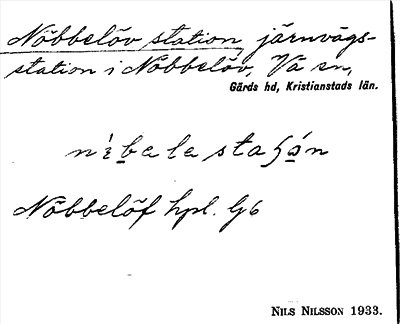 Nöbbelöv station, järnvägs-
station i Nöbbelöv, Vä sn,
Gärds hd, Kristianstads län.
Nöbbelöf hpl. Gj 6
NILS NILSSON 1933.